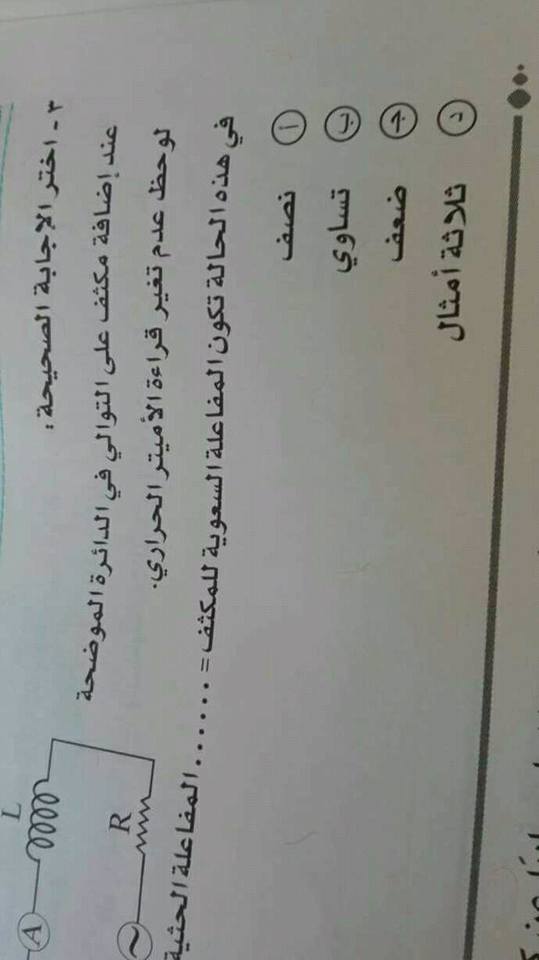 ٣- اختر الإجابة الصحيحة :
عند إضافة مكثف على التوالي في الدائرة الموضحة
لوحظ عدم تغير قراءة الأميتر الحراري.
في هذه الحالة تكون المفاعلة السعوية للمكثف = ....... المفاعلة الحثية
أ نصف
ب تساوي
ج ضعف
د ثلاثة أمثال
A L
~ R